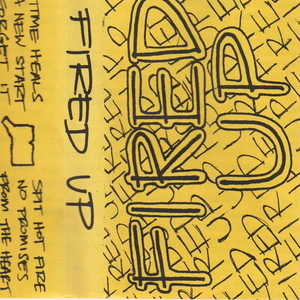 FIRED
UP
FIRED UP
TIME HEALS
A NEW START
FORGET IT
SPIT HOT FIRE
NO PROMISES
FROM THE HEART